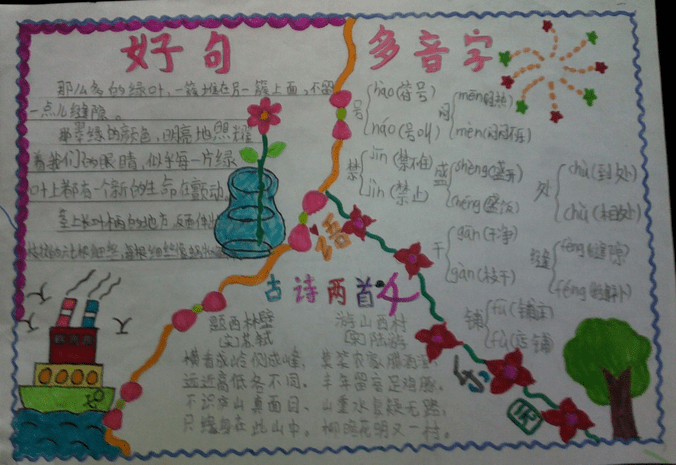 好句
那么多的绿叶，一簇堆在另一簇上面，不留
一点儿缝隙。
翠绿的颜色，明亮地照耀
着我们的眼睛，似乎每一片绿
叶上都有一个新的生命在颤动
多音字
号
hào(符号)
háo(号叫)
闷
mēn
mèn
禁
jīn(禁不住)
jìn(禁止)
盛
shèng
chéng(盛饭)
处
chù(到处)
chǔ(相处)
干
gān(干净)
gàn(枝干)
缝
fèng(缝隙)
féng
铺
pū
pù(店铺)
语
文
古诗两首
题西林壁
(宋)苏轼
横看成岭侧成峰，
远近高低各不同。
不识庐山真面目，
只缘身在此山中。
游山西村
(宋)陆游
莫笑农家腊酒浑，
丰年留客足鸡豚。
山重水复疑无路，
柳暗花明又一村。